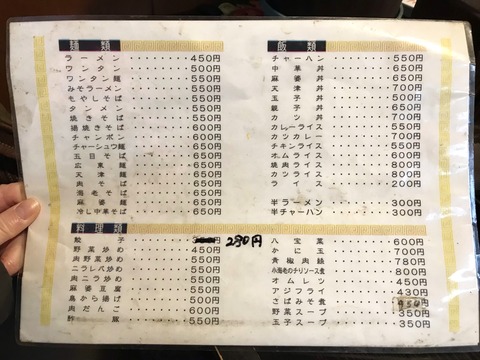 麺類
ラーメン 450円
ワンタン 500円
ワンタン麺 550円
みそラーメン 550円
もやしそば 550円
タンメン 550円
焼きそば 550円
揚焼きそば 600円
チャンポン 600円
チャーシュウ麺 650円
五目そば 650円
広東麺 650円
天津麺 650円
肉そば 650円
海老そば 650円
麻婆麺 650円
冷し中華そば 650円
飯類
チャーハン 550円
中華丼 650円
麻婆丼 650円
天津丼 700円
玉子丼 500円
親子丼 650円
カツ丼 700円
カレーライス 550円
カツカレー 700円
チキンライス 550円
オムライス 600円
焼肉ライス 800円
カツライス 800円
ライス 200円
半ラーメン 300円
半チャーハン 300円
料理類
餃子 280円
野菜炒め 450円
肉野菜炒め 550円
ニラレバ炒め 550円
肉ニラ炒め 550円
麻婆豆腐 550円
鳥から揚げ 500円
肉だんご 600円
酢豚 550円
八宝菜 600円
かに玉 700円
青椒肉絲 780円
小海老のチリソース煮 800円
オムレツ 450円
アジフライ 430円
さばみそ煮
野菜スープ 350円
玉子スープ 350円